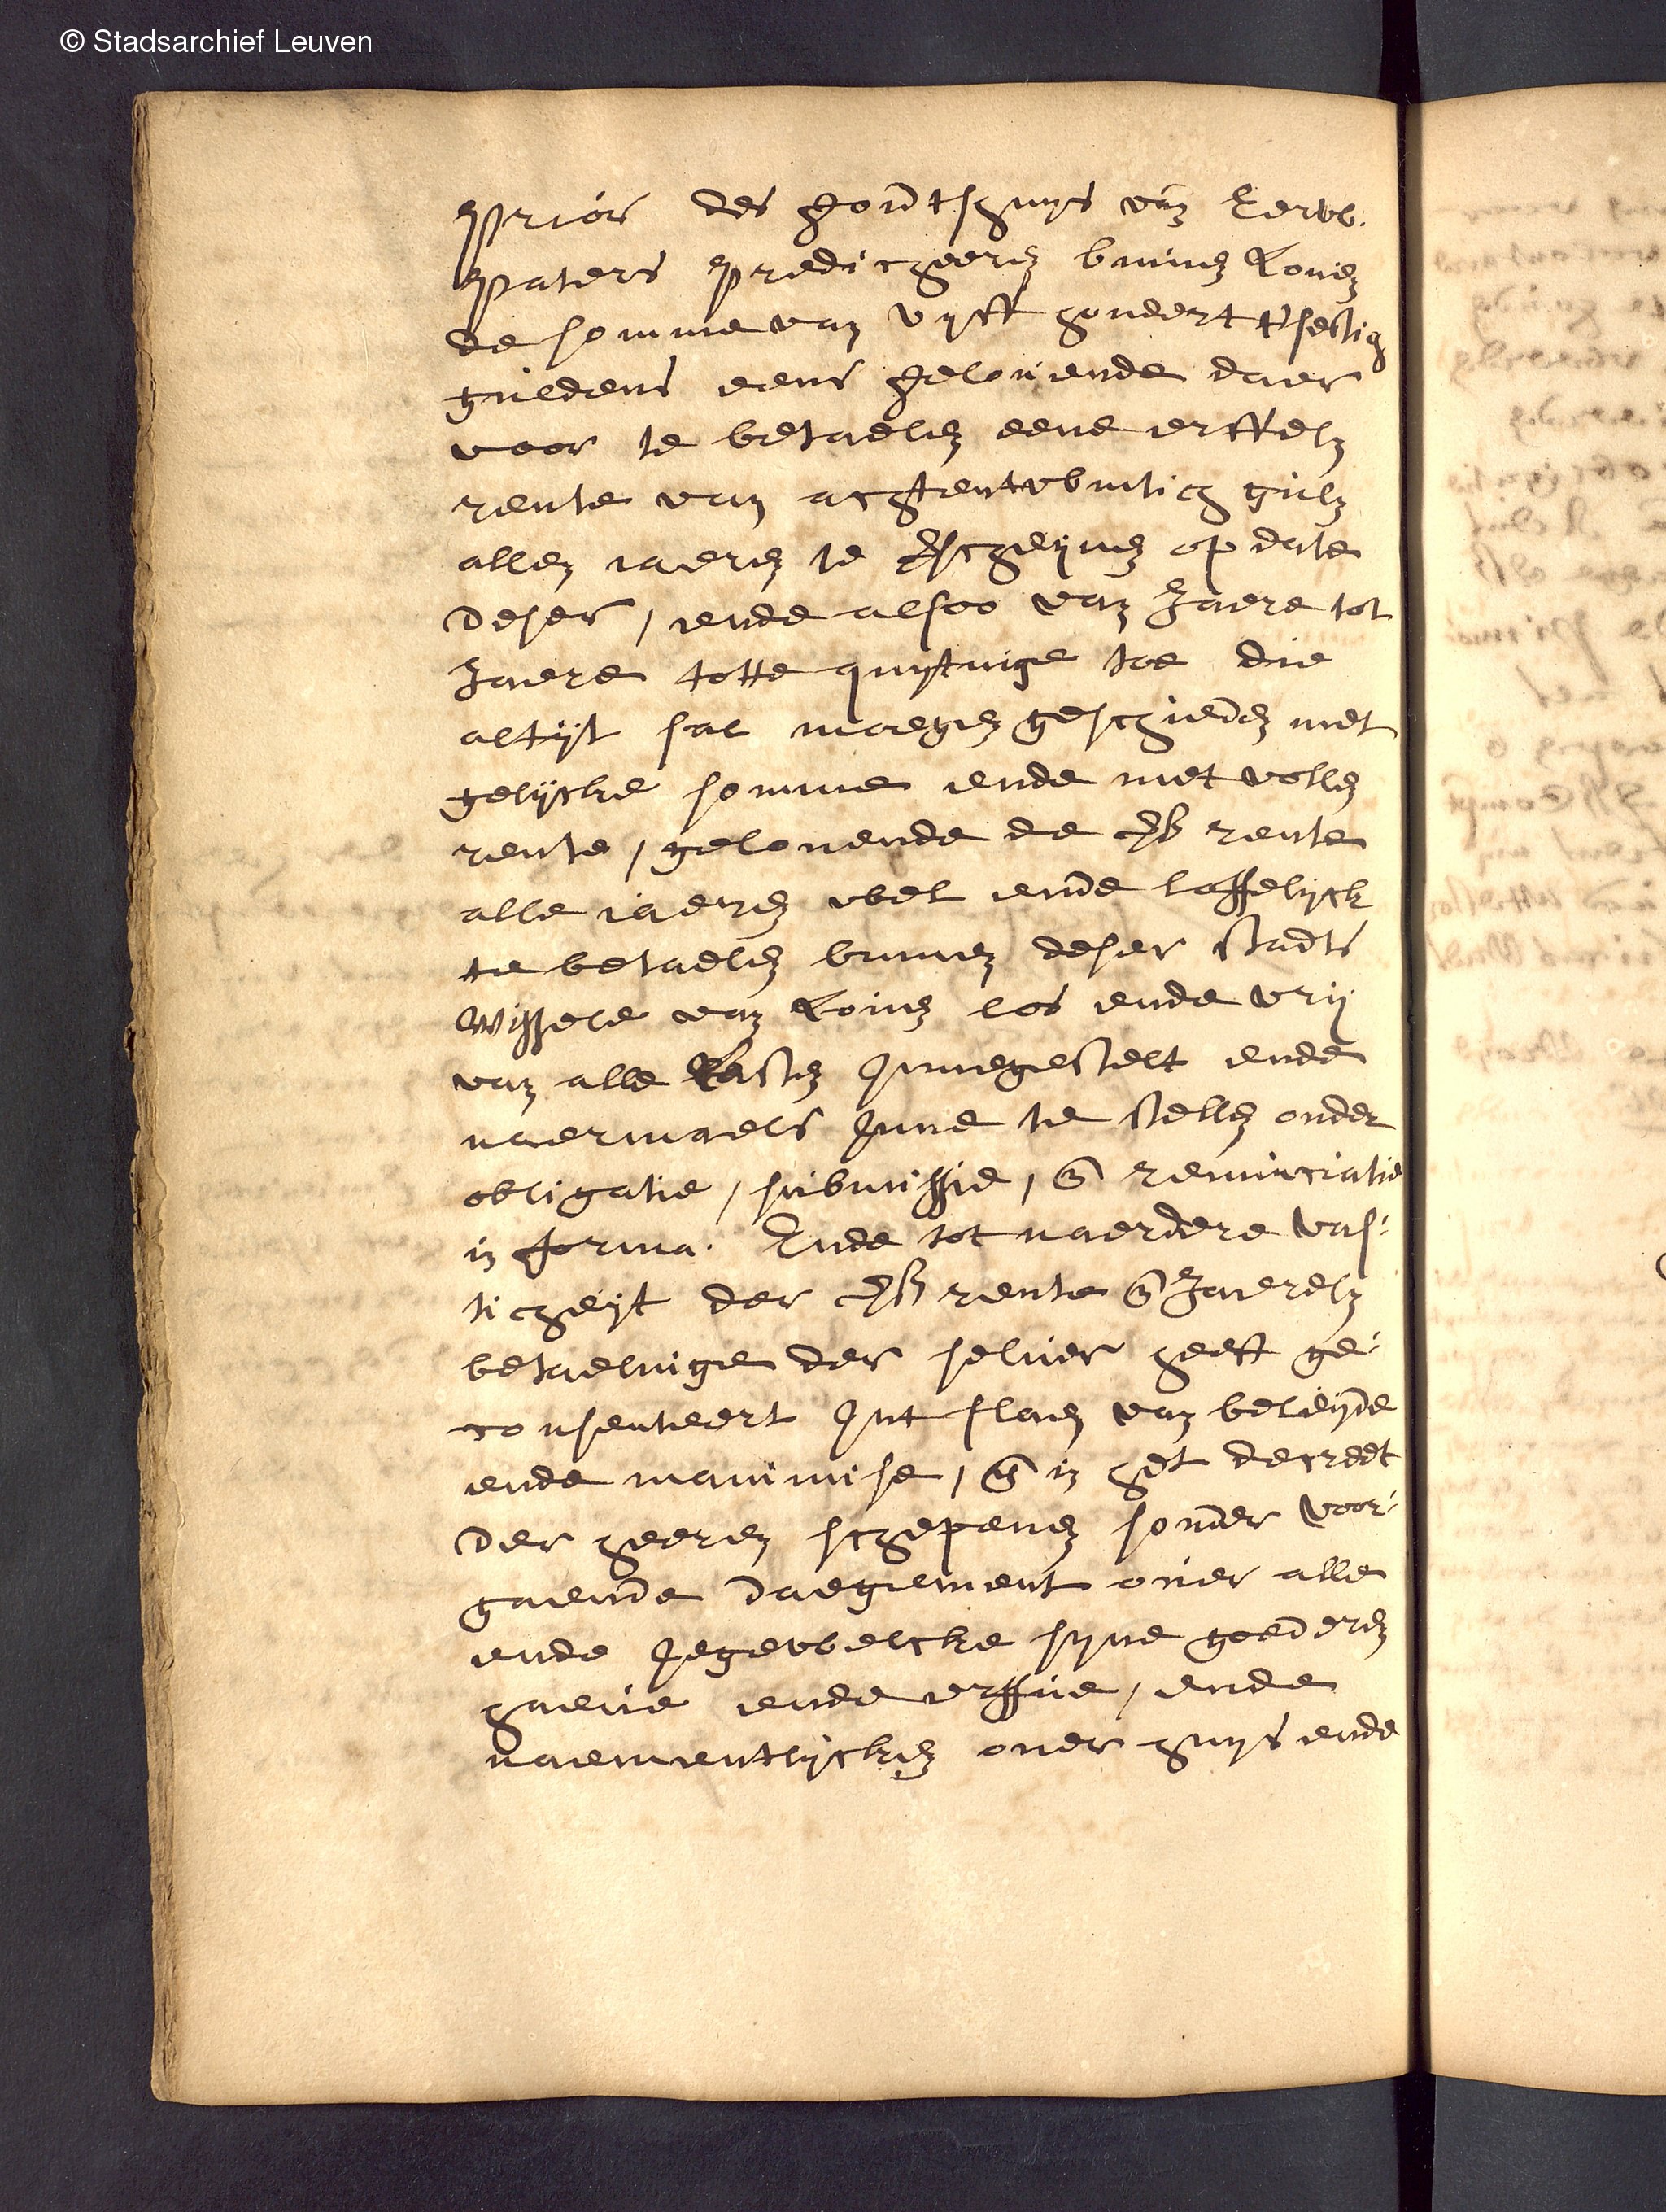 © Stadsarchief Leuven
Prior des Godtshuys van Eerw.
Paters Predicheeren binnen Loven
de somme van vyff hondert tsestig
guldens eens gelovende daer
voor te betaelen eene erffel
rente van achtentwintich gul
allen iaeren te verscheynen op date
deser / ende alsoo van Jaere tot
Jaere totte quytinge toe die
altijt sal moegen geschieden met
gelijcke somme ende met volle
rente / gelovende de vs rente
alle iaeren wel ende loffelyck
te betaelen binnen deser stadts
wissele van Loven los ende vrij
van alle Lasten Innegestelt ende
naermaels Inne te stellen onder
obligatie / submissie / en renunciatie
in forma. Ende tot naerdere vas:
ticheijt der vs rente en Jaerel
betaelinge der selver heeft ge:
consenteert Int slaen van beleijde
ende manimise / en in het decreet
der heeren schepenen sonder voor:
gaende daegement over alle
ende Iegewelcke syne goederen
haeve ende erffve / ende
naementlijcken over huys ende